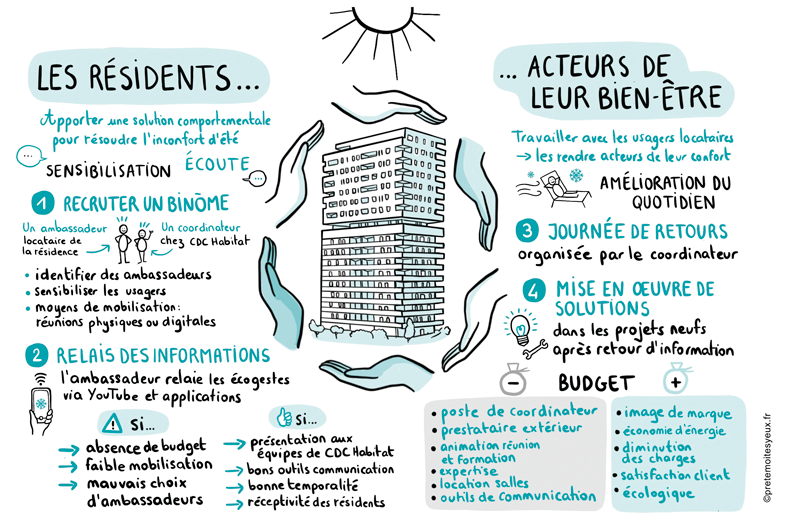 LES RÉSIDENTS...
Apporter une solution comportementale
pour résoudre l'inconfort d'été
...
SENSIBILISATION
ÉCOUTE
...
1 RECRUTER UN BINÔME
Un ambassadeur
locataire de
la résidence
Un coordinateur
chez CDC Habitat
• identifier des ambassadeurs
• sensibiliser les usagers
• moyens de mobilisation:
réunions physiques ou digitales
2 RELAIS DES INFORMATIONS
l'ambassadeur relaie les écogestes
via YouTube et applications
! Si...
→ absence de budget
→ faible mobilisation
→ mauvais choix
d'ambassadeurs
Si...
→ présentation aux
équipes de CDC Habitat
→ bons outils communication
→ bonne temporalité
→ réceptivité des résidents
... ACTEURS DE
LEUR BIEN-ÊTRE
Travailler avec les usagers locataires
→ les rendre acteurs de leur confort
AMÉLIORATION DU
QUOTIDIEN
3 JOURNÉE DE RETOURS
organisée par le coordinateur
4 MISE EN ŒUVRE DE
SOLUTIONS
dans les projets neufs
après retour d'information
- BUDGET +
• poste de coordinateur
• prestataire extérieur
• animation réunion
et formation
• expertise
• location salles
• outils de communication
• image de marque
• économie d'énergie
• diminution
des charges
• satisfaction client
• écologique
©pretemoitesyeux.fr